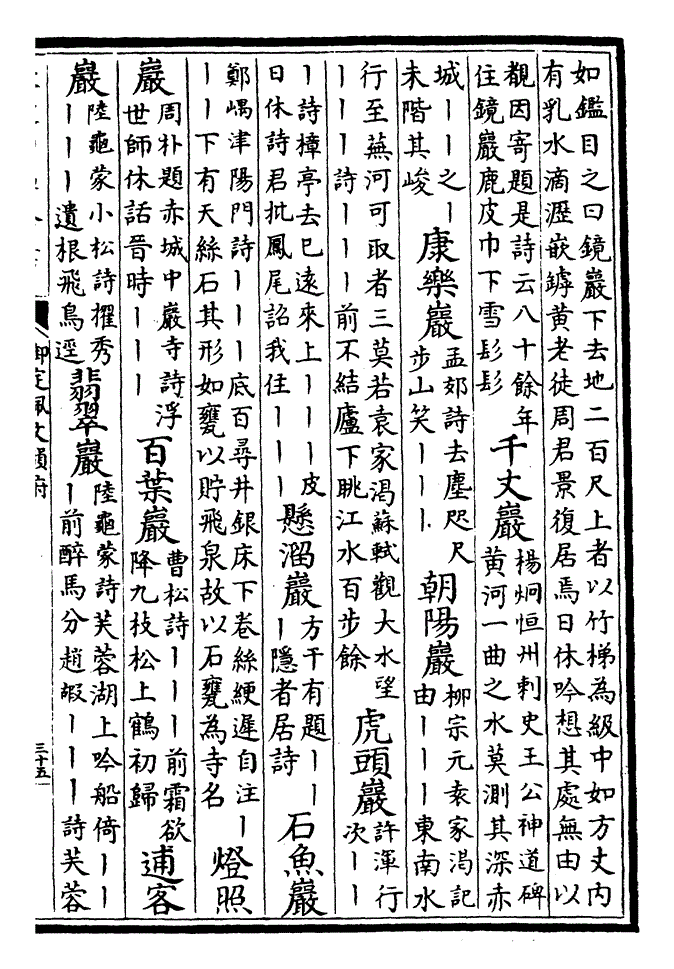 如鑑目之曰鏡巖下去地二百尺上者以竹梯為級中如方丈内
有乳水滴瀝嵌罅黄老徒周君景復居焉日休吟想其處無由以
覩因寄題是詩云八十餘年
住鏡巖鹿皮巾下雪髟髟
千丈巖
楊炯恒州刺史王公神道碑
黄河一曲之水莫測其深赤
城丨丨之丨
未階其峻
康樂巖
孟郊詩去塵咫尺
步山笑丨丨丨
朝陽巖
柳宗元袁家渇記
由丨丨丨東南水
行至蕪河可取者三莫若袁家渇蘇軾觀大水望
丨丨丨詩丨丨丨前不結廬下眺江水百步餘
虎頭巖
許渾行
次丨丨
丨詩樟亭去巳遠來上丨丨丨皮
日休詩君批鳳尾詔我住丨丨丨
懸溜巖
方干有題丨丨
丨隱者居詩
石魚巖
鄭嵎津陽門詩丨丨丨底百尋井銀床下卷絲綆遲自注丨
丨丨下有天絲石其形如甕以貯飛泉故以石甕為寺名
燈照
巖
周朴題赤城中巖寺詩浮
世師休話晉時丨丨丨
百葉巖
曹松詩丨丨丨前霜欲
降九枝松上鶴初歸
逋客
巖
陸龜蒙小松詩擢秀
丨丨丨遺根飛鳥逕
翡翠巖
陸龜蒙詩芙蓉湖上吟船倚丨丨
丨前醉馬分趙嘏丨丨丨詩芙蓉
御定佩文韻府
三十五